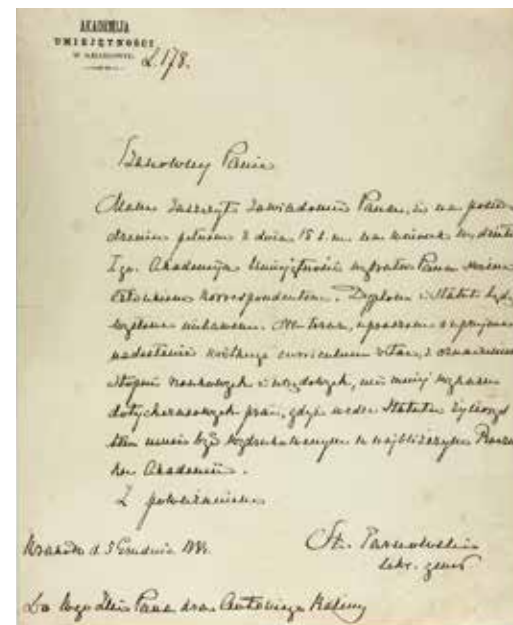 AKADEMIJA
UMIEJĘTNOŚCI
W KRAKOWIE.
L. 178.
Szanowny Panie
Mam zaszczyt zawiadomić Pana, iż na posie-
dzeniu pełnem z dnia 15 b. m. na wniosek wydziału
I go. Akademija Umiejętności wybrała Pana
członkiem korrespondentem. Dyplom i Statut będą
wysłane niebawem. Na teraz, upraszam uprzejmie
nadesłanie krótkiego curriculum vitae, z oznaczeniem
stopni naukowych i urzędowych, nie mniej wykazu
dotychczasowych prac, gdyż wedle Statutu życiorys
ten musi być wydrukowanym w najbliższym Roczni-
ku Akademii.
Z poważaniem
Kraków d. 5 Grudnia
St. Tarnowski
sekr. gener
Do Wgo Pana dra Antoniego Kaliny